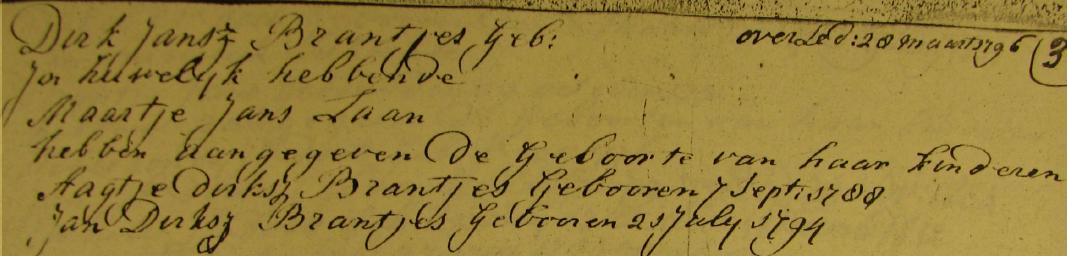 Dirk Jansz Brantjes Geb: overled: 28 maart 1796 (3
Jn huwelijk hebbende
Maartje Jans Laan
hebben aangegeven de Geboorte van haar kinderen
Aagtje dirksz Brantjes Gebooren 7 Sept: 1788
Jan Dirksz Brantjes Gebooren 21 July 1794